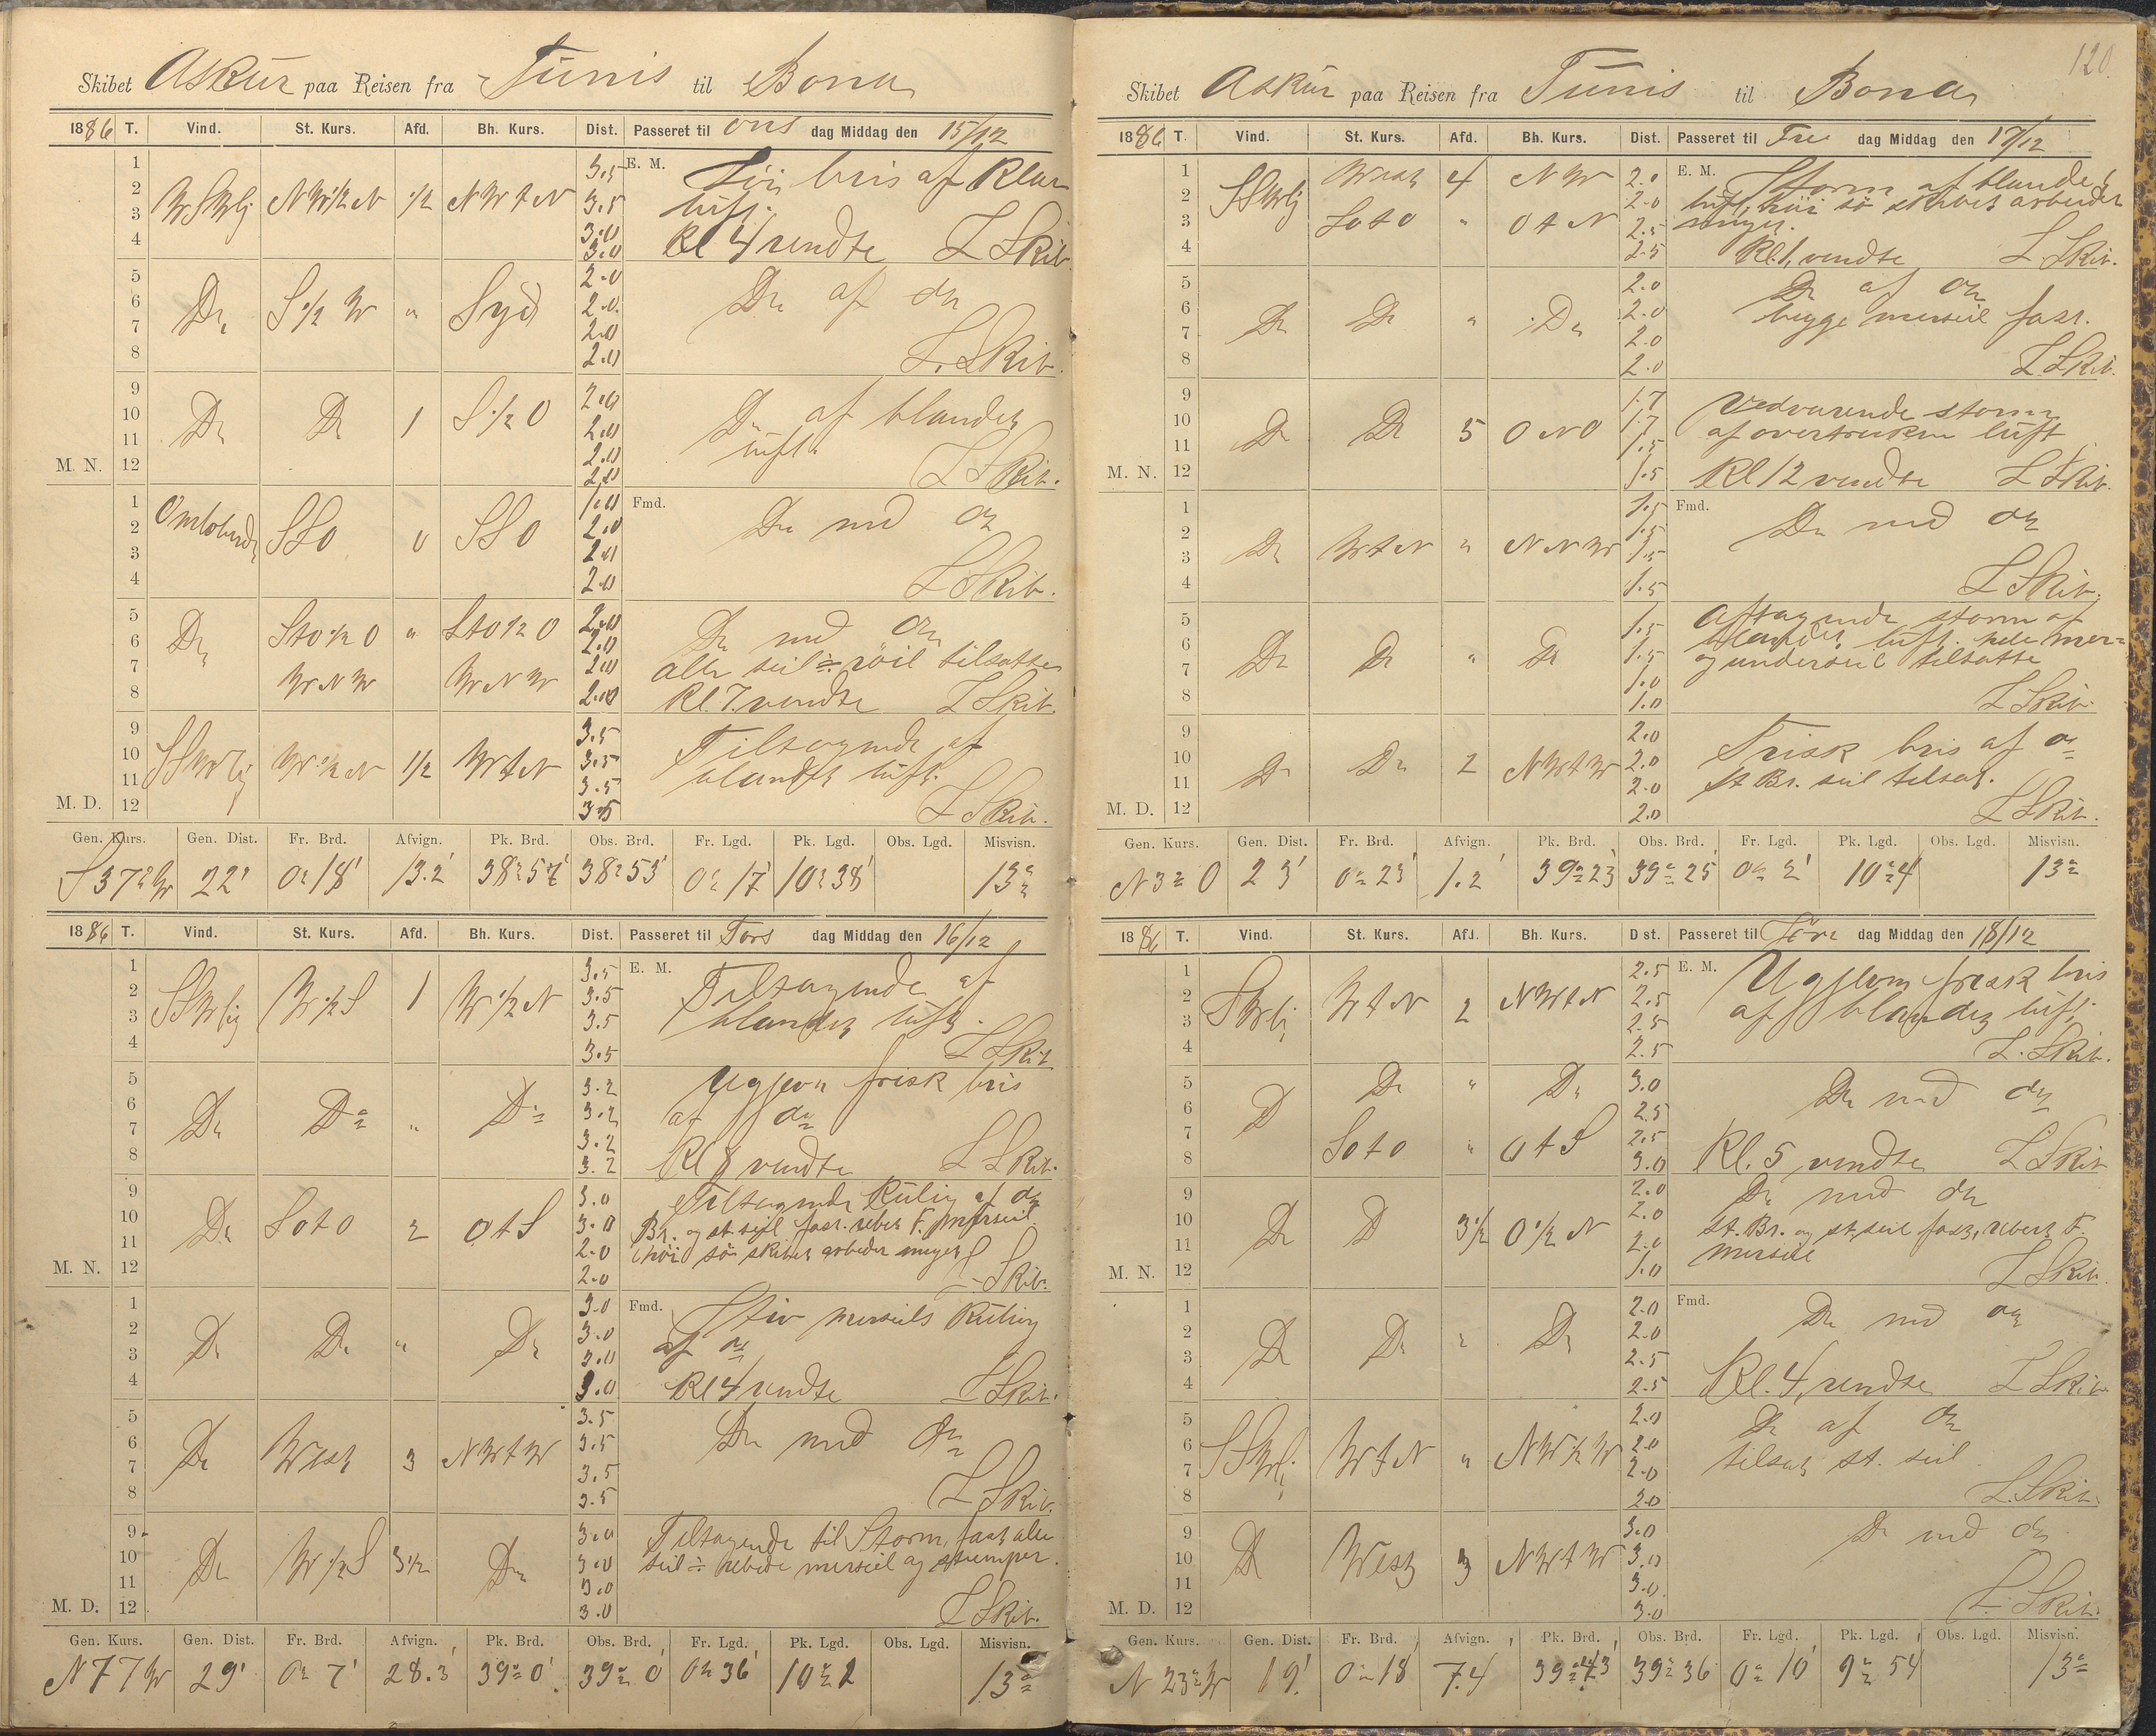 Skibet Askur paa Reisen fra Tunis til Bona
1886 T. Vind. St. Kurs. Afd. Bh. Kurs. Dist. Passeret til Ons dag Middag den 15/12
1 3.5 E. M. bris af Klar
2 WSWlig NW½N ½ NWtN 3.5 luft.
3 3.0
4 3.0 Kl 4 vendte L Skib.
5 2.0
6 Do S½W " Syd 2.0 Do af do
7 2.0
8 2.0 L. Skib.
9 2.0
10 Do Do 1 S½O 2.0 Do af blandet
11 2.0 luft
M. N. 12 2.0 L Skib.
1 1.0 Fmd.
2 Omløbende SSO 0 SSO 2.0 Do med do
3 2.0
4 2.0 L Skib.
5 2.0
6 Do StO½O " StO½O 2.0 Do med do
7 WNW WNW 2.0 alle seil ÷ röil tilsatte
8 2.0 Kl. 7. vendte L Skib.
9 3.5
10 SSWlig W½N ½ WtN 3.5 Tiltagende af
11 3.5 blandet luft.
M. D. 12 3.5 L Skib.
Gen. Kurs. Gen. Dist. Fr. Brd. Afvign. Pk. Brd. Obs. Brd. Fr. Lgd. Pk. Lgd. Obs. Lgd. Misvisn.
S 37° W 22' 0° 18' 13.2' 38° 57' 38° 53' 0° 17' 10° 38' 13°
1886 T. Vind. St. Kurs. Afd. Bh. Kurs. Dist. Passeret til Tors dag Middag den 16/12
1 3.5 E. M. Tiltagende af
2 SSWlig W½S 1 W½N 3.5 blandet luft.
3 3.5
4 3.5 L Skib
5 3.2 Ugjevn frisk bris
6 Do Do " Do 3.2 af do
7 3.2
8 3.2 Kl 8 vendte L Skib.
9 3.0 Tiltagende Kuling af do
10 Do SOtO 2 OtS 3.0 Br. og st. seil fast. rebet F. merseil
11 2.0 höi sö skibet arbeider meget
M. N. 12 2.0 L Skib.
1 3.0 Fmd. Stiv merseils Kuling
2 Do Do " Do 3.0 af do
3 3.0
4 3.0 Kl 4 vendte L Skib.
5 3.5
6 Do West 3 NWtW 3.5 Do med do
7 3.5
8 3.5 L Skib.
9 3.0 Tiltagende til Storm, fast alle
10 Do W½S 3½ Do 3.0 seil ÷ rebede merseil og stumper.
11 3.0
M. D. 12 3.0 L Skib.
Gen. Kurs. Gen. Dist. Fr. Brd. Afvign. Pk. Brd. Obs. Brd. Fr. Lgd. Pk. Lgd. Obs. Lgd. Misvisn.
N 77 W 29' 0° 7' 28.3' 39° 0' 39° 0' 0° 36' 10° 2 13°
120.
Skibet Askur paa Reisen fra Tunis til Bona
1886 T. Vind. St. Kurs. Afd. Bh. Kurs. Dist. Passeret til Fre dag Middag den 17/12
1 West 4 NW 2.0 E. M. Storm af blandet
2 SSWlig 2.0 luft, höi sö skibet arbeider
3 SOtO " OtN 2.5 meget.
4 2.5 Kl. 1, vendte L. Skib.
5 2.0 Do af do
6 Do Do " Do 2.0 begge merseil fast.
7 2.0
8 2.0 L. Skib.
9 1.7 Vedvarende storm
10 Do Do 5 ONO 1.7 af overtrukken luft
11 1.5
M. N. 12 1.5 Kl 12 vendte L Skib.
1 1.5 Fmd.
2 Do WtN " NNW 1.5 Do med do
3 1.5
4 1.5 L Skib.
5 1.5 Aftagende storm af
6 Do Do " Do 1.5 blandet luft. hele mer=
7 1.0 og underseil tilsatte
8 1.0 L Skib.
9 2.0
10 Do Do 2 NWtW 2.0 Frisk bris af do
11 2.0 St Br. seil tilsat.
M. D. 12 2.0 L Skib.
Gen. Kurs. Gen. Dist. Fr. Brd. Afvign. Pk. Brd. Obs. Brd. Fr. Lgd. Pk. Lgd. Obs. Lgd. Misvisn.
N 3° O 23' 0° 23' 1.2' 39° 23' 39° 25' 0° 2' 10° 4 13°
1886 T. Vind. St. Kurs. Afd. Bh. Kurs. Dist. Passeret til Lör dag Middag den 18/12
1 2.5 E. M. Ugjevn frisk bris
2 SWlig WtN 2 NWtN 2.5 af blandet luft,
3 2.5
4 2.5 L. Skib.
5 Do " Do 3.0
6 D 2.5 Do med do
7 SOtO " OtS 2.5
8 3.0 Kl. 5 vendte L Skib
9 2.0 Do med do
10 Do D 3½ O½N 2.0 St. Br. og st. seil fast, rebet F.
11 2.0 merseil
M. N. 12 1.0 L Skib.
1 2.0 Fmd.
2 Do Do " Do 2.0 Do med do
3 2.5
4 2.5 Kl. 4, vendte L Skib.
5 2.0 Do af do
6 SSWlig WtN " NW½W 2.0 tilsat st. seil
7 2.0
8 2.0 L. Skib.
9 3.0 Do med do
10 Do West 3 NWtW 3.0
11 3.0
M. D. 12 3.0 L. Skib.
Gen. Kurs. Gen. Dist. Fr. Brd. Afvign. Pk. Brd. Obs. Brd. Fr. Lgd. Pk. Lgd. Obs. Lgd. Misvisn.
N 23° W 19' 0° 18' 7.4 39° 43 39° 36 0° 10' 9° 54 13°